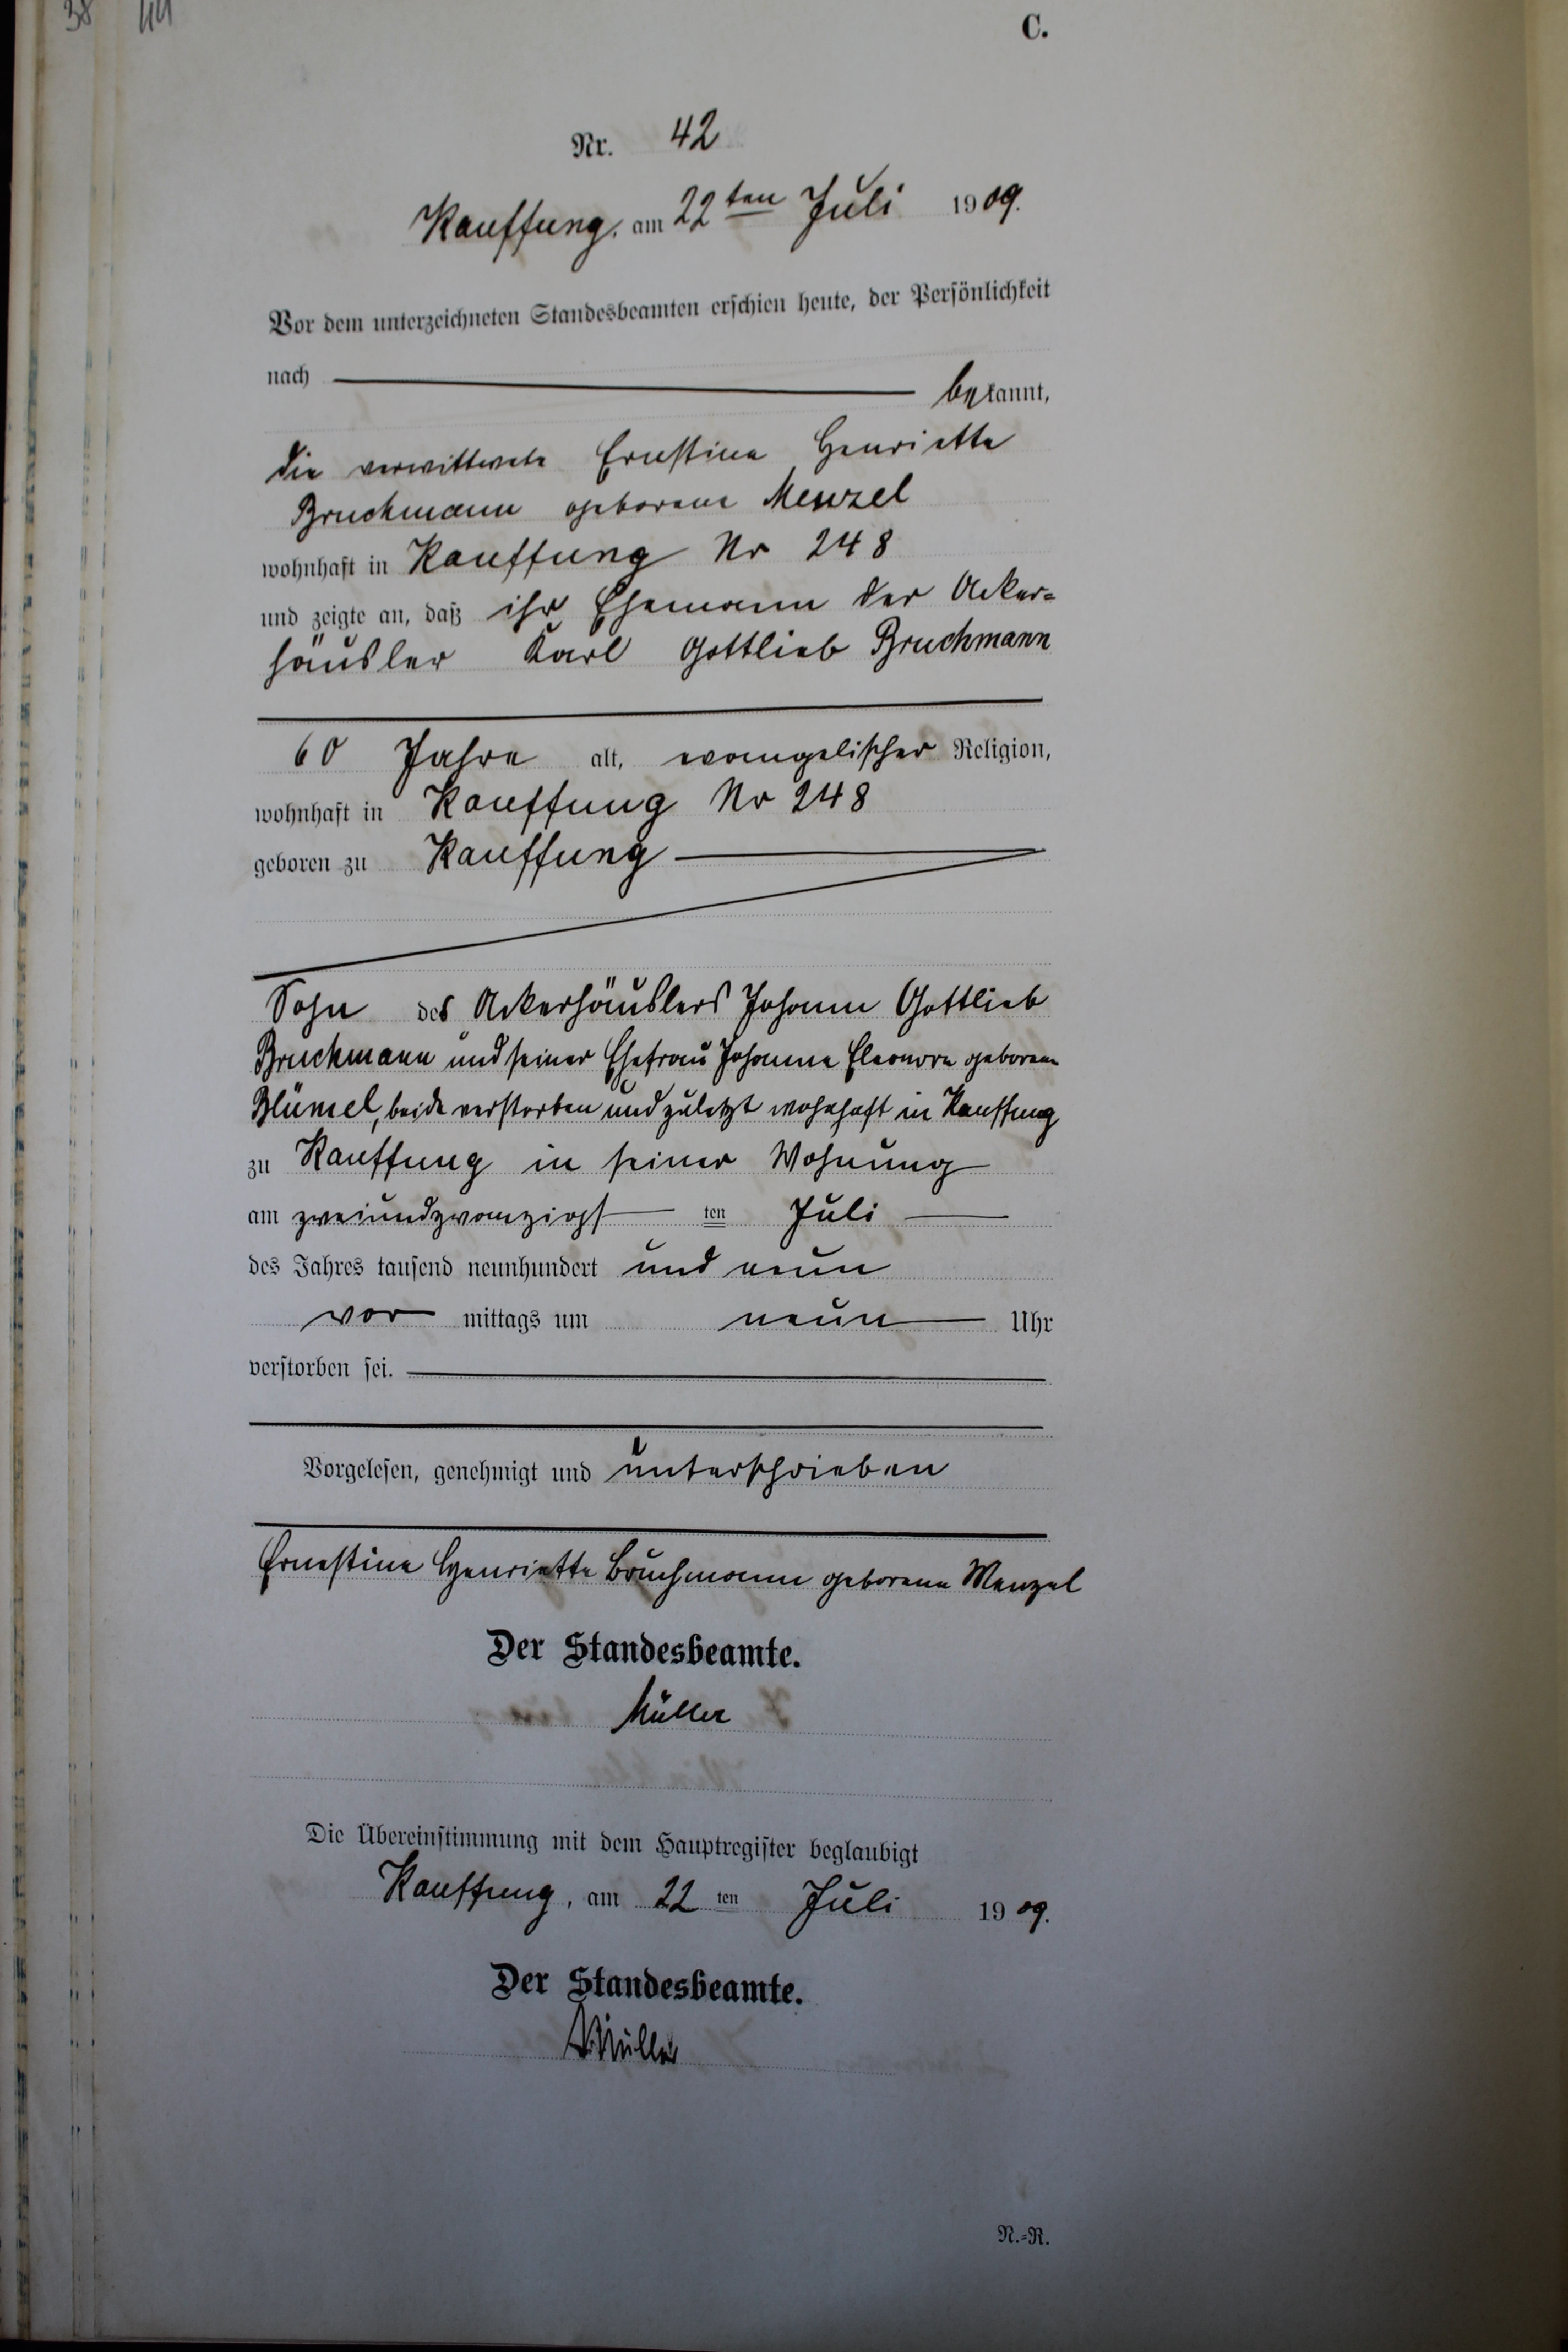 38 44
C.
Nr. 42
Kauffung, am 22ten Juli 1909.
Vor dem unterzeichneten Standesbeamten erschien heute, der Persönlichkeit
nach bekannt,
die verwittwete Ernestine Henriette
Bruchmann geborene Menzel
wohnhaft in Kauffung No 248
und zeigte an, daß ihr Ehemann der Acker=
häusler Karl Gottlieb Bruchmann
60 Jahre alt, evangelischer Religion,
wohnhaft in Kauffung No 248
geboren zu Kauffung
Sohn des Ackerhäuslers Johann Gottlieb
Bruchmann und seiner Ehefrau Johanne Eleonore geborene
Blümel, beide verstorben und zuletzt wohnhaft in Kauffung
zu Kauffung in seiner Wohnung
am zweiundzwanzigsten Juli
des Jahres tausend neunhundert und neun
vor mittags um neun Uhr
verstorben sei.
Vorgelesen, genehmigt und unterschrieben
Ernestine Henriette Bruchmann geborene Menzel
Der Standesbeamte.
Müller
Die Übereinstimmung mit dem Hauptregister beglaubigt
Kauffung, am 22ten Juli 1909.
Der Standesbeamte.
Müller
N.=R.